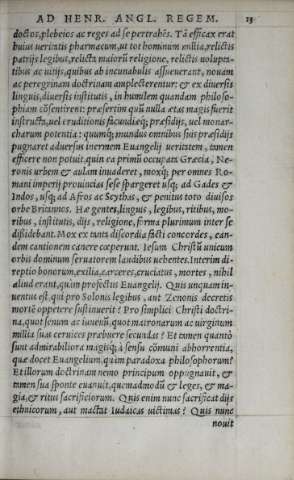 AD HENR. ANGL. REGEM. 15
doctos, plebeios ac reges ad se pertrahēs. Tā efficax erat
huius ueritatis pharmacum, ut tot hominum millia, relictis
patrijs legibus, relicta maiorū religione, relictis uolupta-
tibus ac uitijs, quibus ab incunabulis assueuerant, nouam
ac peregrinam doctrinam amplecterentur: & ex diuersis
linguis, diuersis institutis, in humilem quandam philoso-
phiam cōsentirent: præsertim quū nulla ætas magis fuerit
instructa, uel eruditionis facundieq; præsidijs, uel monar-
charum potentia: quumq; mundus omnibus suis præsidijs
pugnaret aduersus inermem Euangelij ueritatem, tamen
efficere non potuit quin ea primū occuparit Græciā, Ne-
ronis urbem & aulam inuaderet, moxq; per omnes Ro-
mani imperij prouincias sese spargeret usq; ad Gades &
Indos, usq; ad Afros ac Scythas, & penitus toto diuisos
orbe Britannos. Hæ gentes, linguis, legibus, ritibus, mo-
ribus, institutis, dijs, religione, forma plurimum inter se
dißidebant. Mox ex tanta discordia facti concordes, ean-
dem cantionem canere cœperunt. Iesum Christū unicum
orbis dominum seruatorem laudibus uehentes. Interim di-
reptio bonorum, exilia, carceres, cruciatus, mortes, nihil
aliud erant, quàm profectus Euangelij. Quis unquam in-
uentus est, qui pro Solonis legibus, aut Zenonis decretis
mortē oppetere sustinuerit? Pro simplici Christi doctri-
na, quot senum ac iuuenū, quot matronarum ac uirginum
millia suas ceruices præbuere secundas? Et tamen quantò
sunt admirabiliora magisq; à sensu cōmuni abhorrentia,
quæ docet Euangelium, quàm paradoxa philosophorum?
Et illorum doctrinam nemo principum oppugnauit, &
tamen sua sponte euanuit, quemadmodū & leges, & ma-
gia, & ritus sacrificiorum. Quis enim nunc sacrificat dijs
ethnicorum, aut mactat Iudaicas uictimas? Quis nunc
nouit